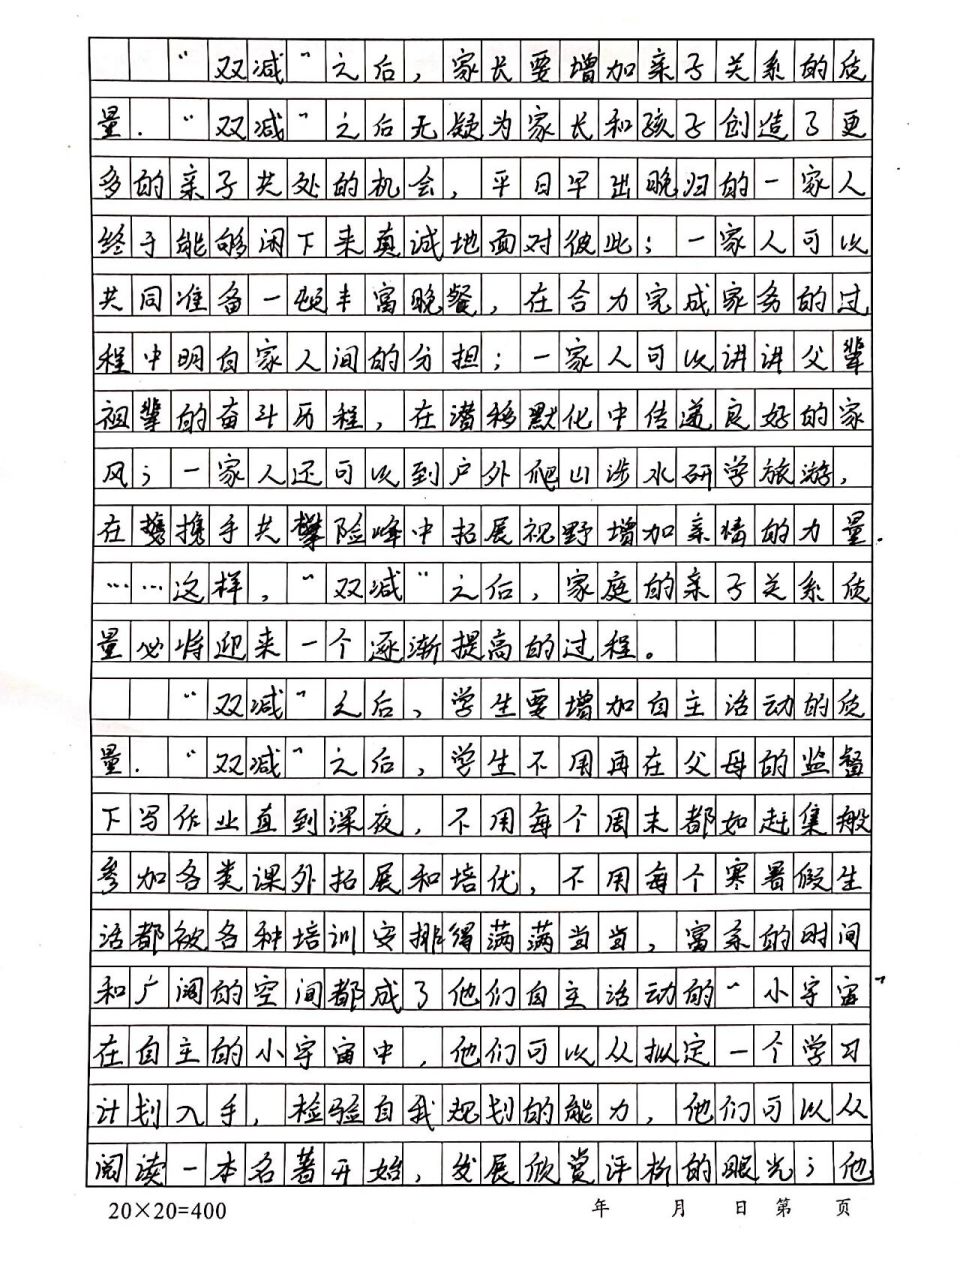 “双减”之后，家长要增加亲子关系的质
量.“双减”之后无疑为家长和孩子创造了更
多的亲子共处的机会，平日早出晚归的一家人
终于能够闲下来真诚地面对彼此；一家人可以
共同准备一顿丰富晚餐，在合力完成家务的过
程中明白家人间的分担；一家人可以讲讲父辈
祖辈的奋斗历程，在潜移默化中传递良好的家
风；一家人还可以到户外爬山涉水研学旅游，
在携手共攀险峰中拓展视野增加亲情的力量.
……这样，“双减”之后，家庭的亲子关系质
量必将迎来一个逐渐提高的过程。
“双减”之后，学生要增加自主活动的质
量.“双减”之后，学生不用再在父母的监督
下写作业直到深夜，不用每个周末都如赶集般
参加各类课外拓展和培优，不用每个寒暑假生
活都被各种培训安排得满满当当，富余的时间
和广阔的空间都成了他们自主活动的“小宇宙”
在自主的小宇宙中，他们可以从拟定一个学习
计划入手，检验自我规划的能力，他们可以从
阅读一本名著开始，发展欣赏评析的眼光；他
20×20=400 年 月 日 第 页